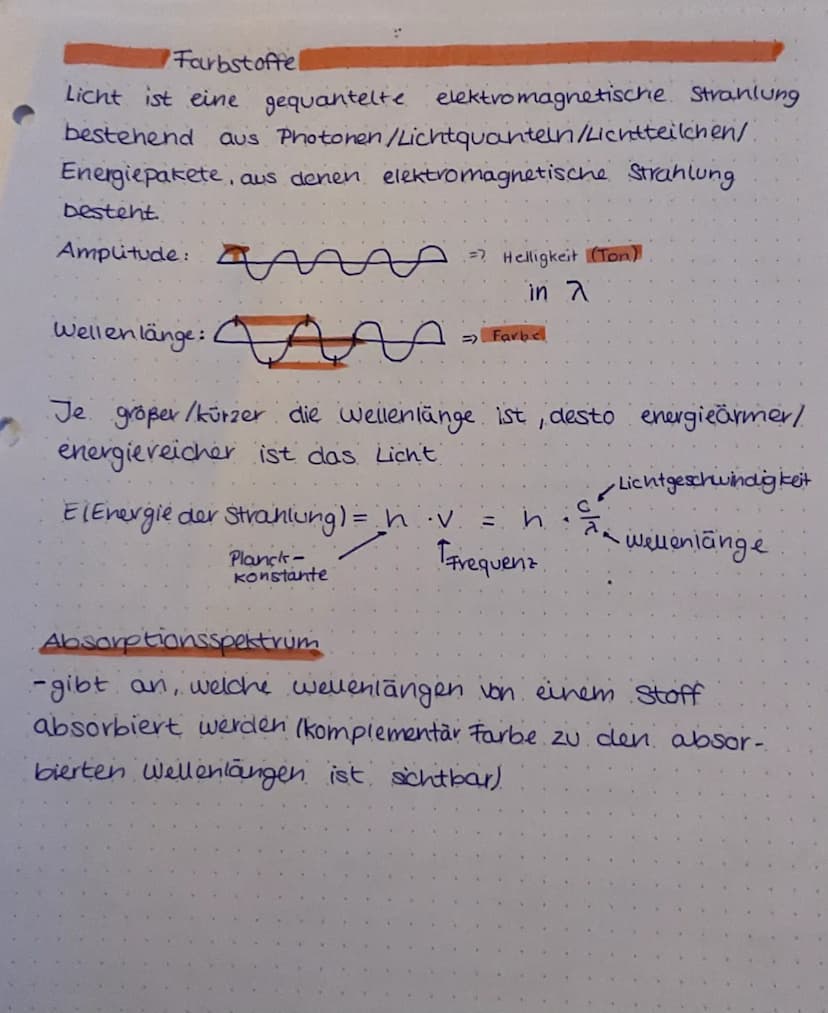 Farbstoffe
Licht ist eine gequantelte elektromagnetische Strahlung
bestehend aus Photonen/Lichtquanteln/Lichtteilchen/
Energiepakete, aus denen elektromagnetische Strahlung
besteht.
Amplitude: => Helligkeit (Ton)
in λ
Wellenlänge: => Farbe
Je größer/kürzer die Wellenlänge ist, desto energieärmer/
energiereicher ist das Licht
E(Energie der Strahlung) = h · v = h · c/λ
Lichtgeschwindigkeit
Wellenlänge
Planck-
konstante
Frequenz
Absorptionsspektrum
-gibt an, welche Wellenlängen von einem Stoff
absorbiert werden (komplementär Farbe zu den absor-
bierten Wellenlängen ist sichtbar)